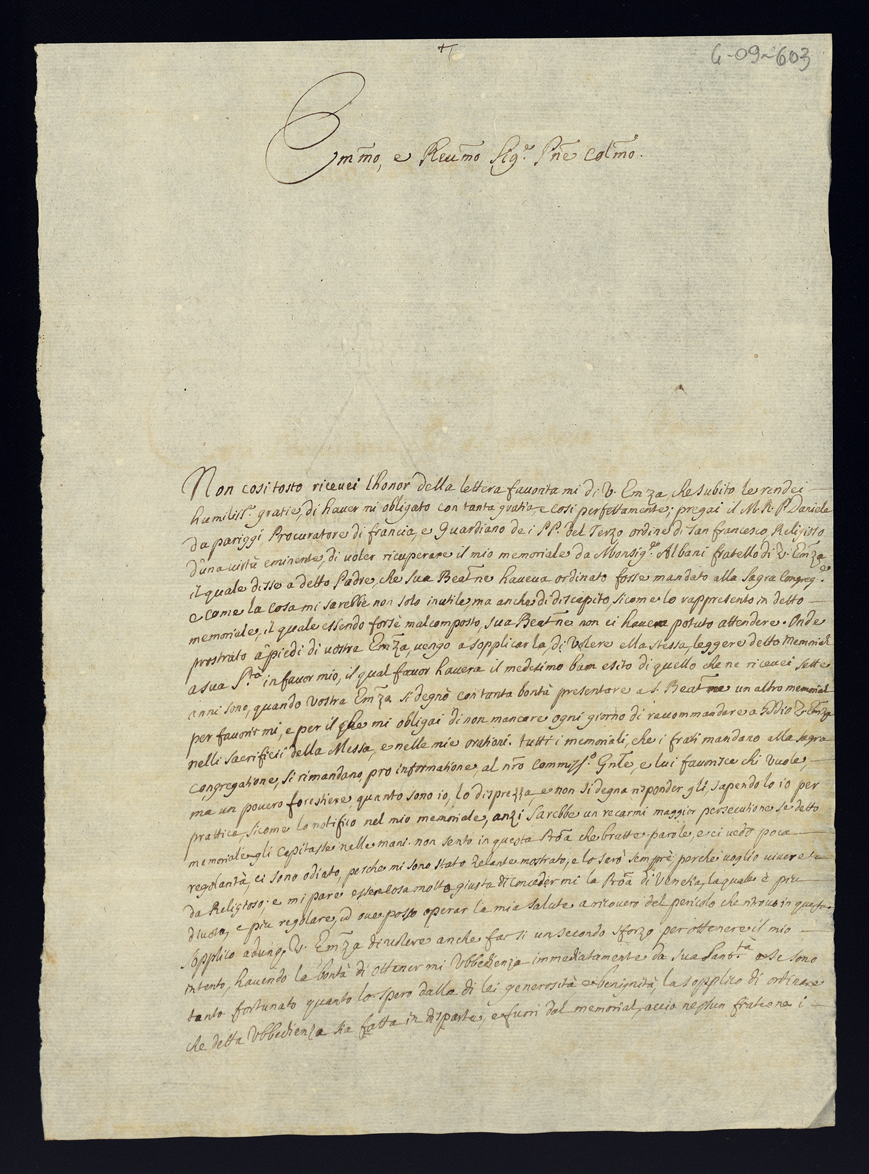 +
6-09-603
Em̃mo, e Reum̃o Sig.r Pñe Colm̃o.
Non cosi tosto riceuei lhonor della lettera fauorita mi di V. Em̃za, che subito le rendei
humiliss.e gratie, di hauer mi obligato con tanta gratia, e cosi perfettamente; pregai il M.R.P. Daniele
da pariggi Procuratore di francia, e Guardiano dei PP. del Terzo ordine di San francesco, Religioso
d'una uirtù eminente, di uoler ricuperare il mio memoriale da Monsig.re Albani fratello di V. Em̃za
il quale disse a detto Padre, che sua Beatñe haueua ordinato fosse mandato alla Sagra Congreg.e
e come la cosa mi sarebbe non solo inutile, ma anche di discapito, sicome lo rappresento in detto
memoriale, il quale essendo forse mal composto, sua Beatñe non ci hauera potuto attendere. Onde
prostrato a piedi di uostra Em̃za, uengo a sopplicarla, di uolere ella stessa, leggere detto memorial
a sua S.tà in fauor mio, il qual fauor hauera il medesimo buon esito di quello che ne riceuei sette
anni sono, quando Vostra Em̃za si degnò con tanta bontà presentare a S. Beatñe un altro memorial
per fauorir mi, e per il che mi obligai di non mancare ogni giorno di raccommandare a Ddio V. Em̃za
nelli Sacrificii della Messa, e nelle mie orationi. tutti i memoriali, che i frati mandano alla sagra
Congregatione, si rimandano, pro informatione, al nro Commiss.o Gnle, e lui fauorisce chi uuole,
ma un pouero forestiere, quanto sono io, lo disprezza, e non si degna risponder gli, sapendolo io per
prattica, sicome lo notifico nel mio memoriale, anzi sarebbe un recarmi maggior persecutione se detto
memoriale gli capitasse nelle mani. non sento in questa che brutte parole, e ci uedo poca
regolarità, ci sono odiato, perche mi sono stato zelante mostrato, e lo serò sempre, perche uoglio uiuere
da Religioso, e mi pare esser cosa molto giusta di conceder mi la di Venetia, la quale è piu
diuota, e piu regolare, id oue posso operar la mia salute a ricouero del pericolo che in questa.
Sopplico adunq. V. Em̃za di uolere anche far si un secondo sforzo per ottenere il mio
intento, hauendo la bontà di ottener mi Vbbedienza immediatamente da sua Sant.tà e se sono
tanto fortunato quanto lo spero dalla di lei generosità e benignità, la sopplico di ordinare
che detta Vbbedienza sia fatta in disparte, e fuori dal memorial, accio nessun frate ne i